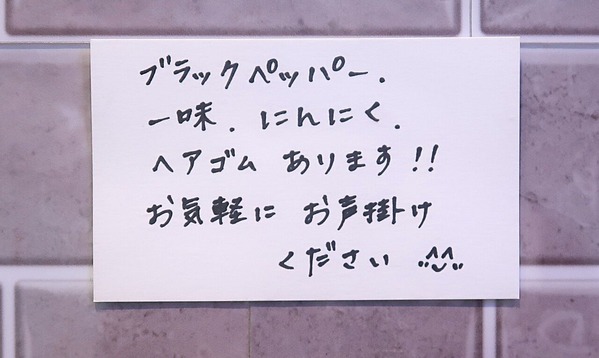 ブラックペッパー.
一味. にんにく.
ヘアゴム あります!!
お気軽に お声掛け
ください ^^